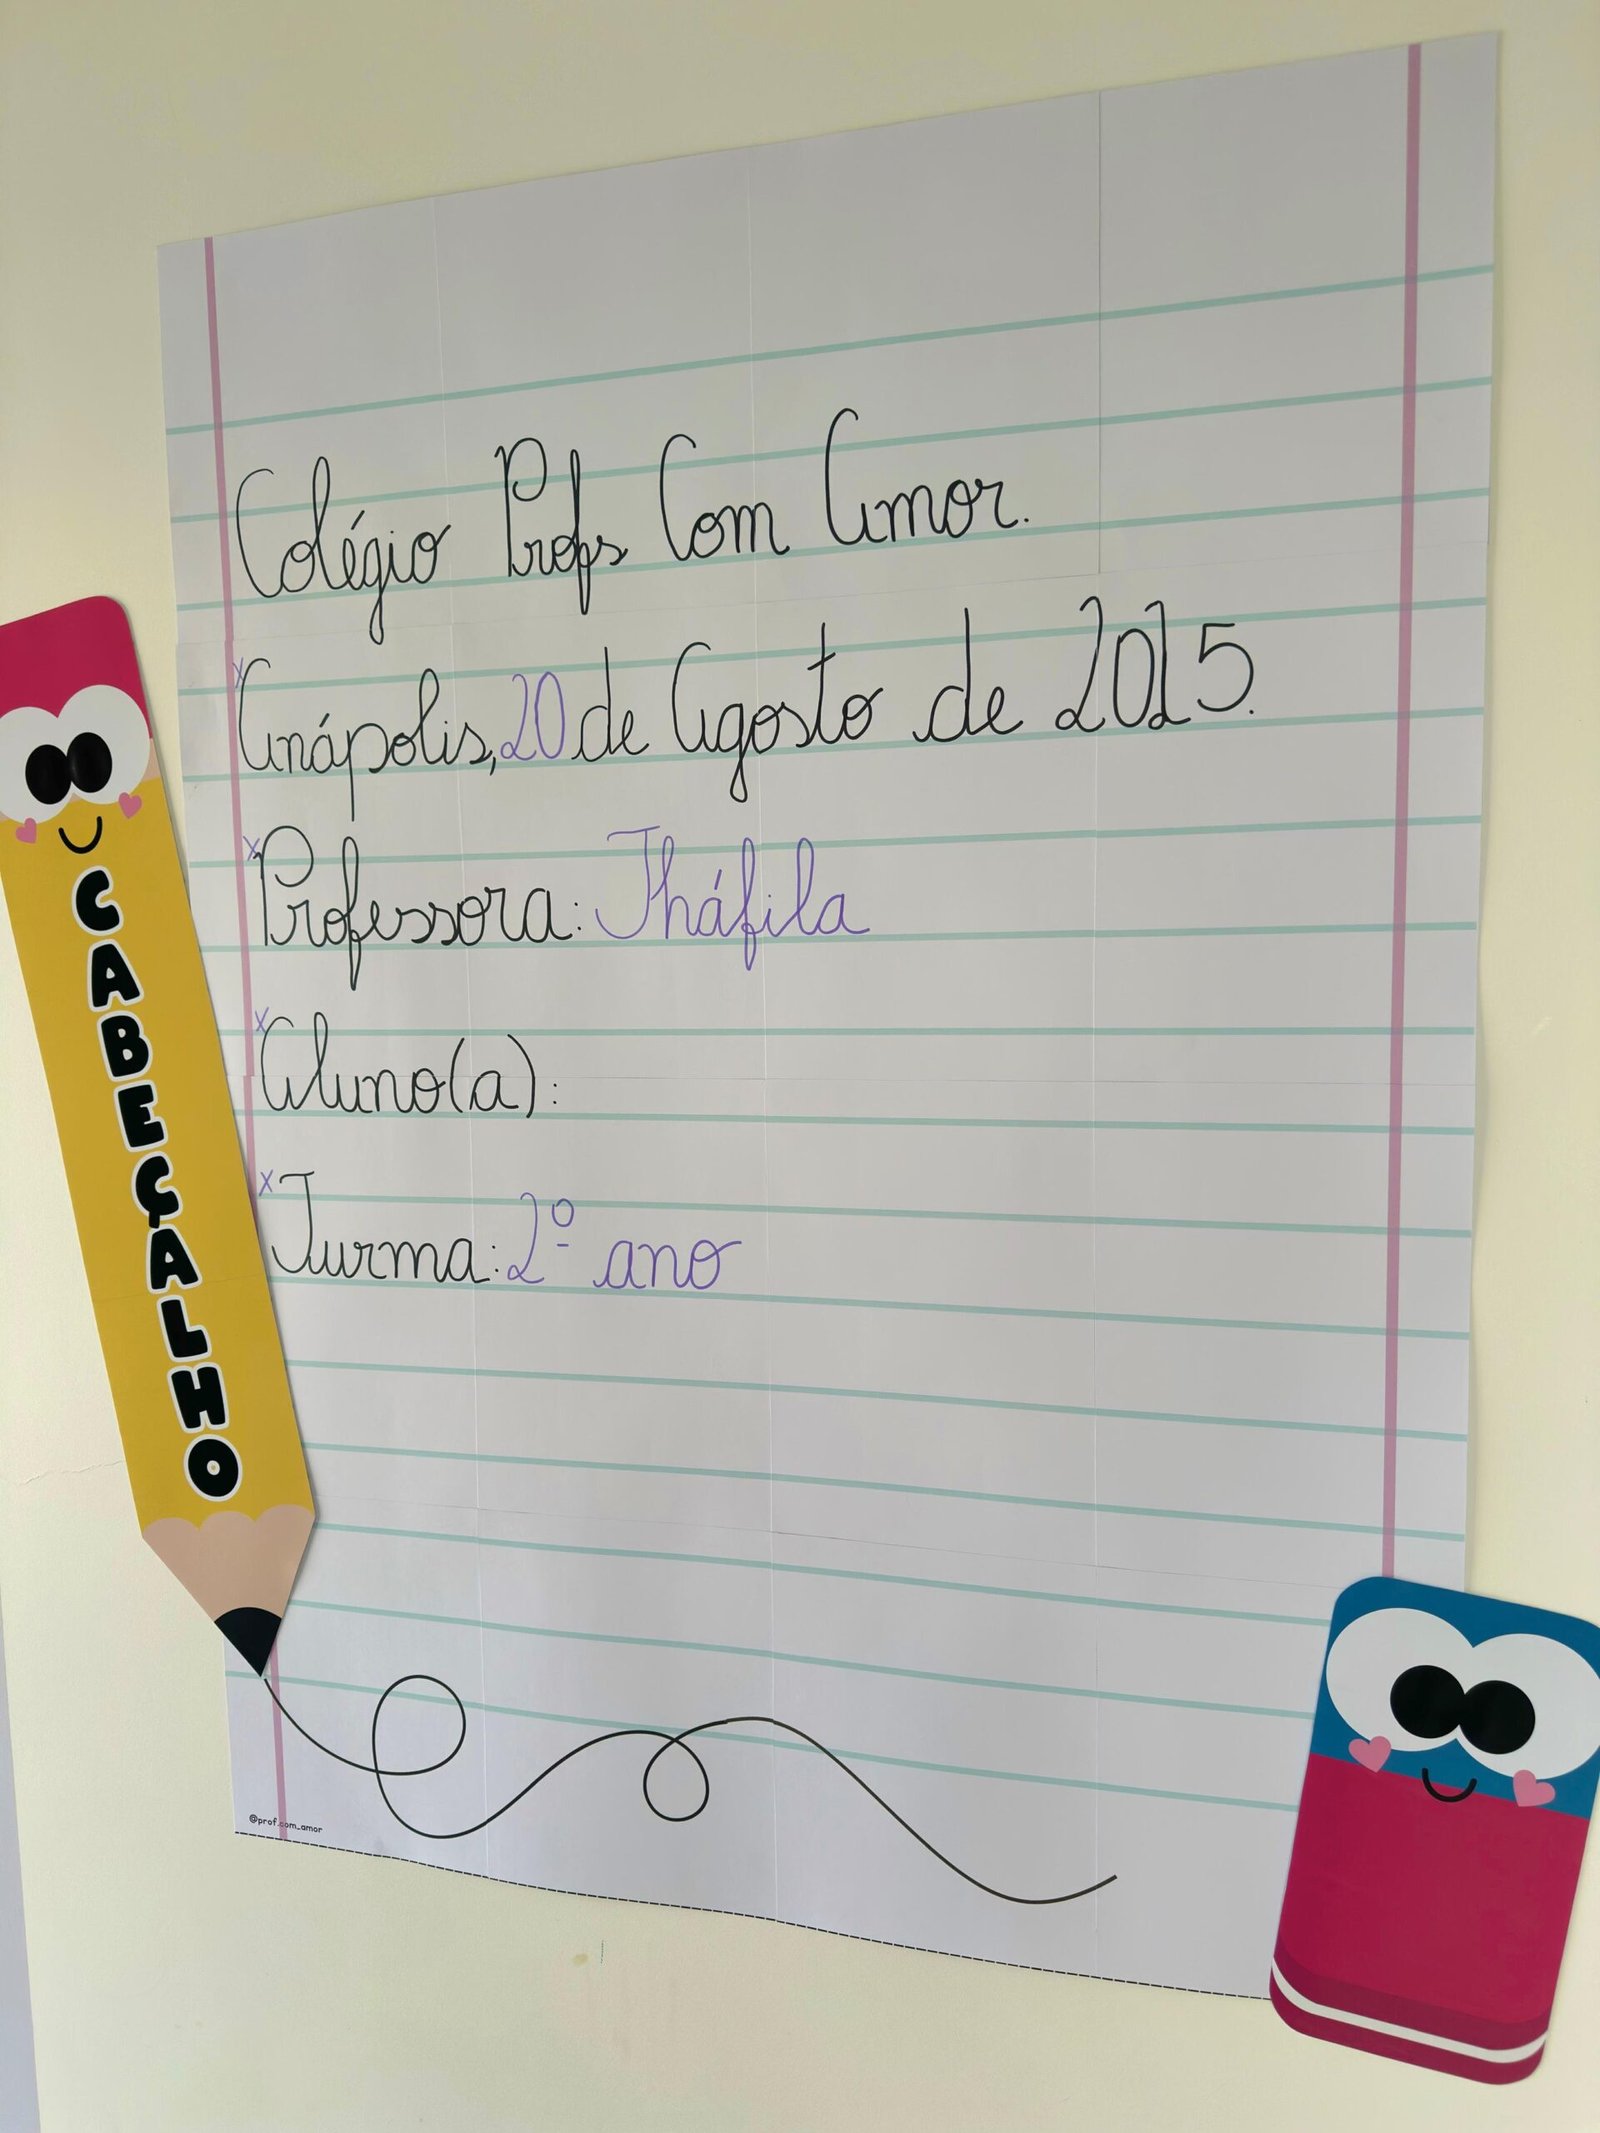 Colégio Profs Com Amor.
x Anápolis, 20 de Agosto de 2025.
x Professora: Tháfila
x Aluno(a):
x Turma: 2º ano
CABEÇALHO
@prof.com_amor